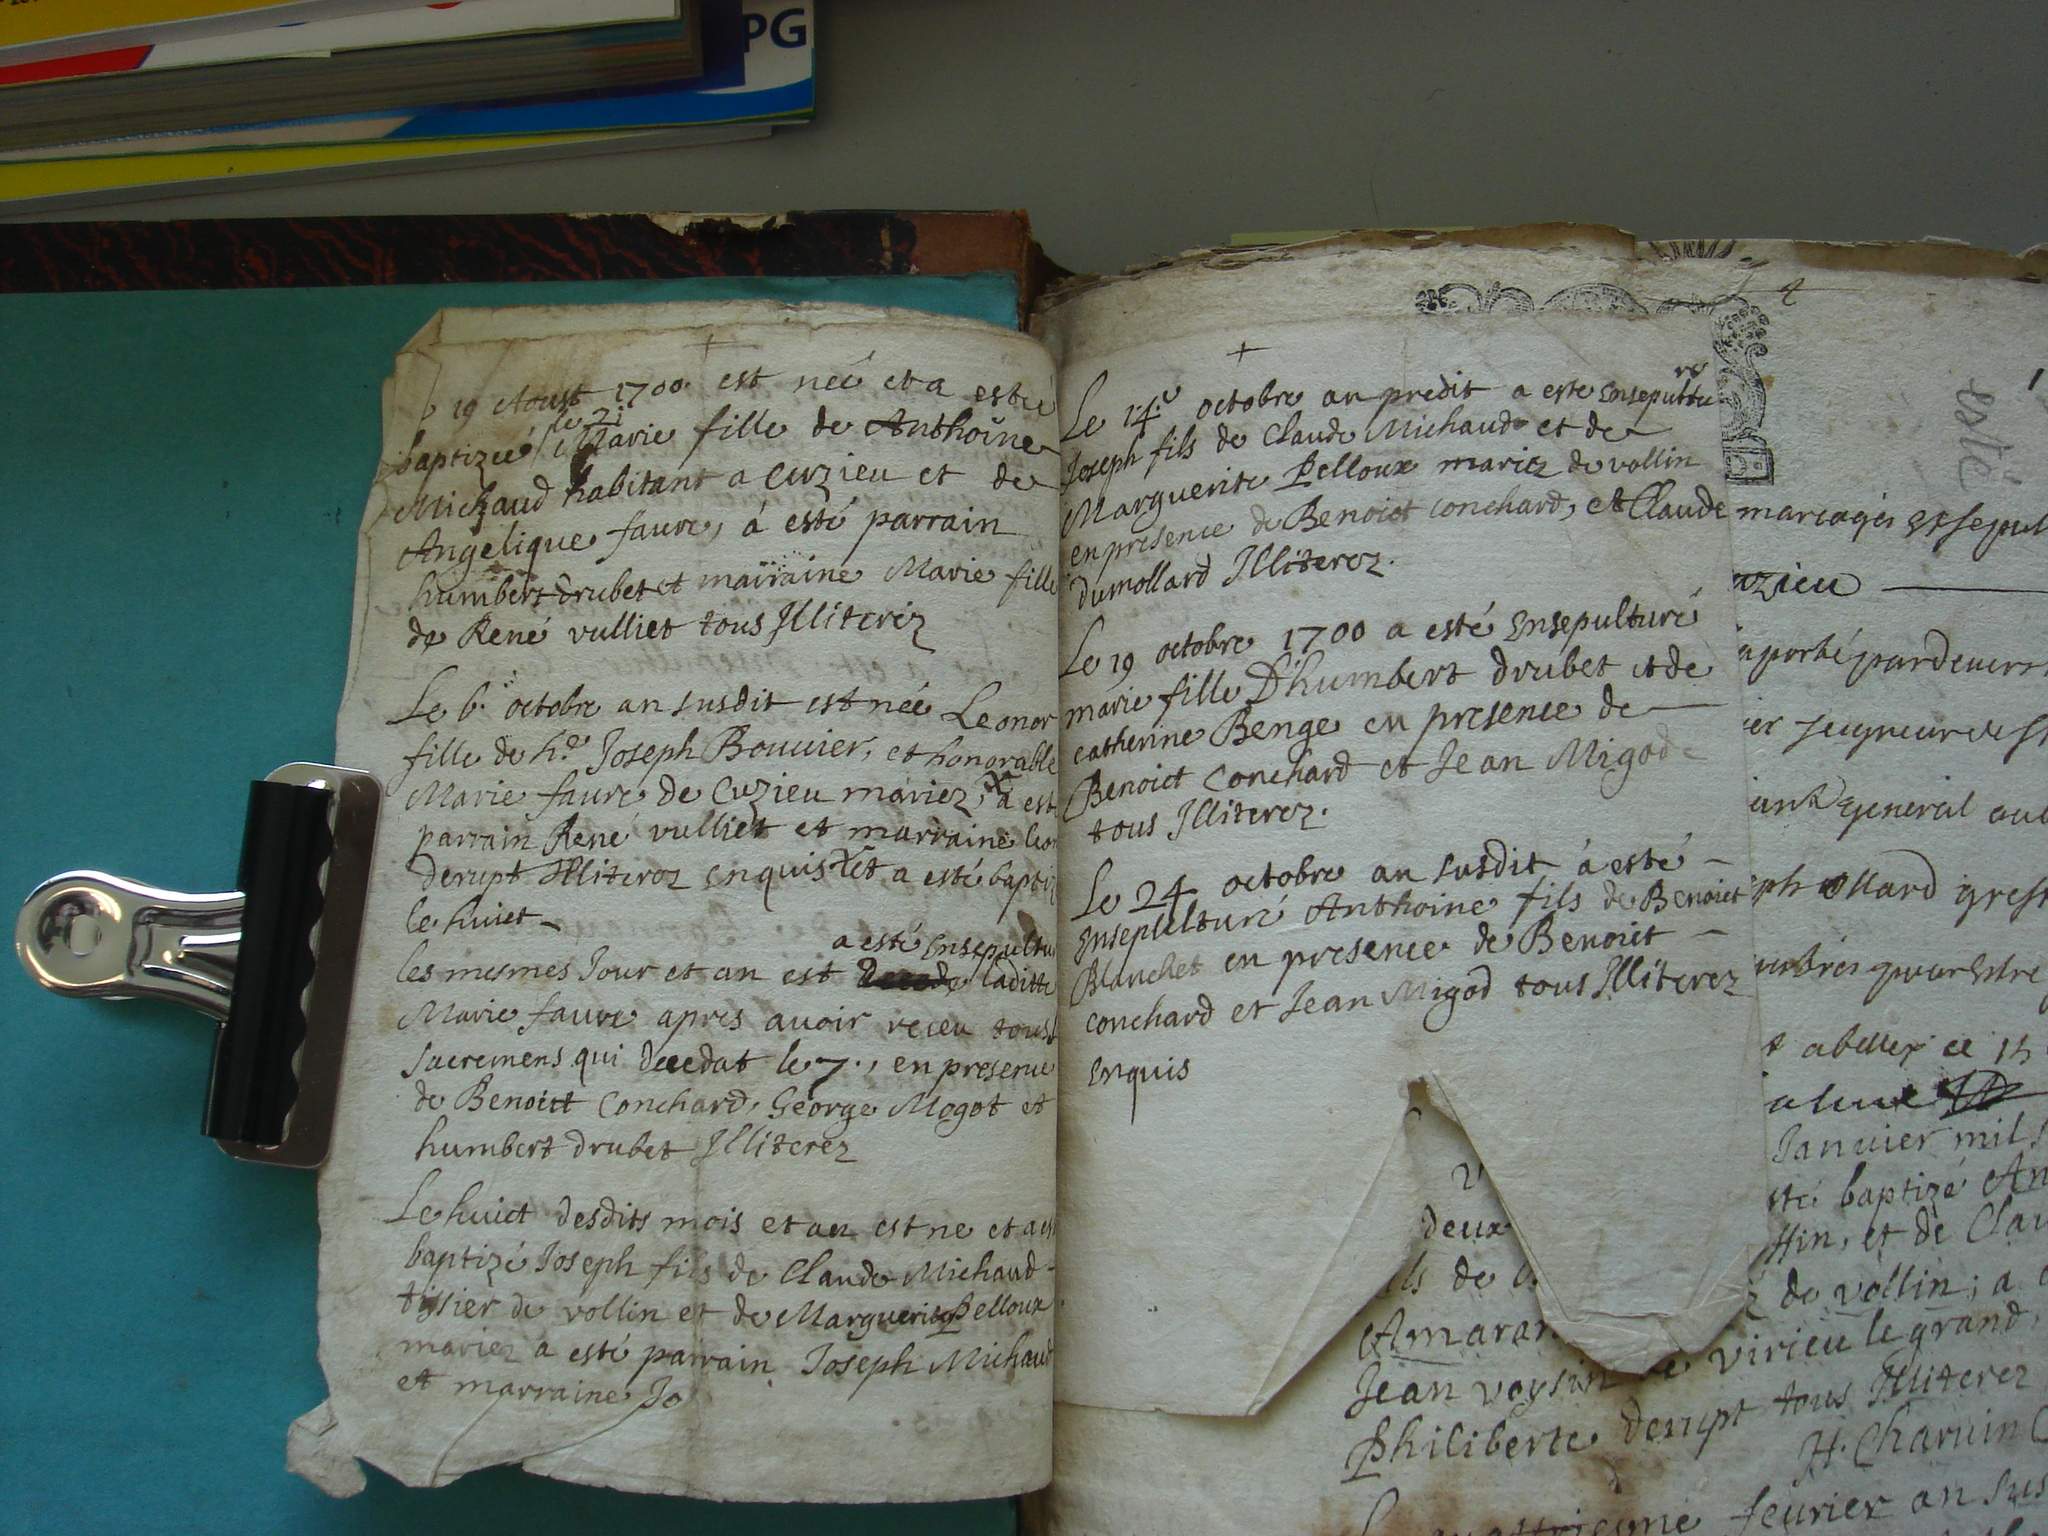 PG
19 Aoust 1700 est neé et a esté
le 21
baptizeé Marie fille de Anthoine
Michaud habitant a Cuzieu et de
Angelique faure, á esté parrain
humbert drubet et marraine Marie fille
de René vulliet tous Illiterez
Le 6. octobre an susdit est née Leonor
fille de h.ᵉ Joseph Bouvier, et honorable
Marie faure de Cuzieu mariez, a est
parrain René vulliet et marraine leon
derupt Illiterez enquis et a esté baptiz
le huict
a esté Ensepultu
les mesmes Jour et an est laditte
Marie faure apres avoir receu tous
sacremens qui decedat le 7., en presence
de Benoict Conchard, George Mogot et
humbert drubet Illiterez
Le huict desdits mois et an est ne et a est
baptizé Joseph fils de Claude Michaud
tissier de vollin et de Marguerite Pelloux
mariez a esté parrain Joseph Michaud
et marraine Jo
Le 14.ᵉ octobre an predit a esté Ensepultu
ré
Joseph fils de Claude Michaud et de
Marguerite Pelloux mariez de vollin
en presence de Benoict conchard, et Claude
dumollard Illiterez.
Le 19 octobre 1700 a esté Ensepulturé
marie fille D'humbert drubet et de
catherine Benge en presence de
Benoict Conchard et Jean Migod
tous Illiterez.
Le 24 octobre an susdit á esté
Enseplulturé Anthoine fils de Benoict
Blanchet en presence de Benoict
conchard et Jean Migod tous Illiterez
Enquis
esté
mariages et sepul
uzieu
aporté pardevers
seigneur de
general au
llard
abellex ce 15
Janvier mil
sté baptizé An
deux
ttin, et de Clau
ils de
de vollin; a
Amaran
virieu le grand,
Jean voysin
Philiberte derupt tous Illiterez
H. Charvin
fevrier an sus